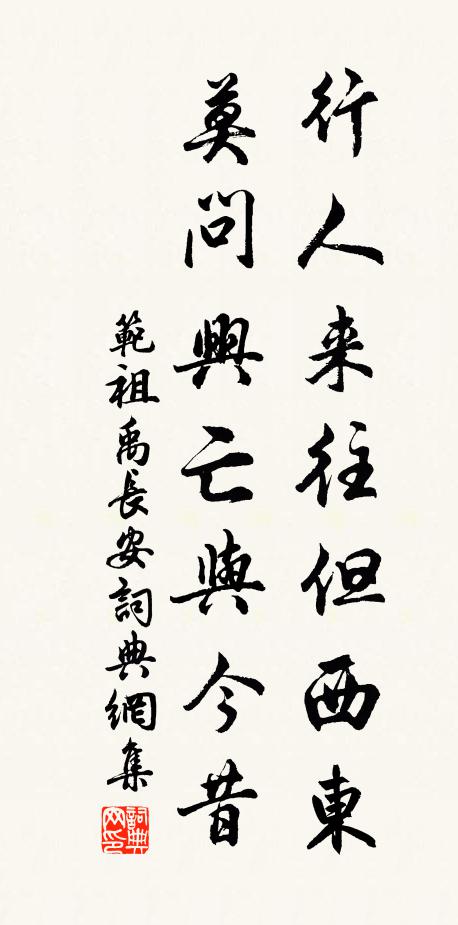 行人来往但西東
莫問興亡與今昔
範祖禹長安詞典網集
詞典网印